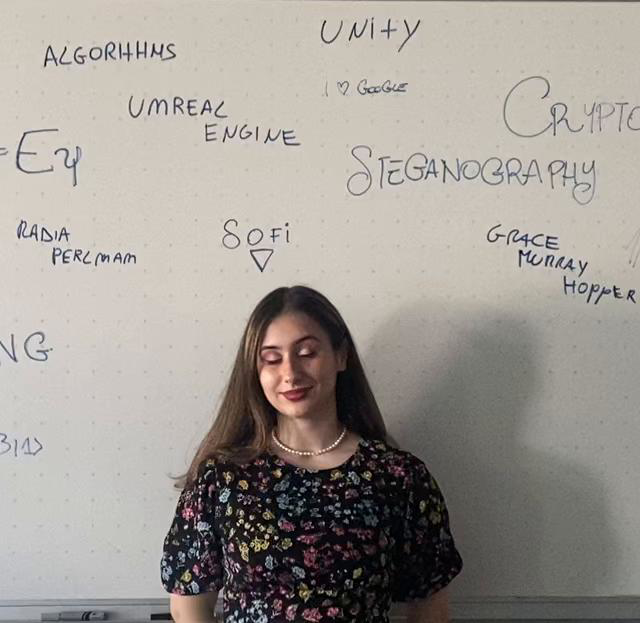 UNITY
ALGORITHMS
I ♡ GOOGLE
UMREAL
ENGINE
CRYPTO
= Eψ
STEGANOGRAPHY
RADIA
PERLMAM
SOFI
GRACE
MURRAY
HOPPER
NG
B|1>